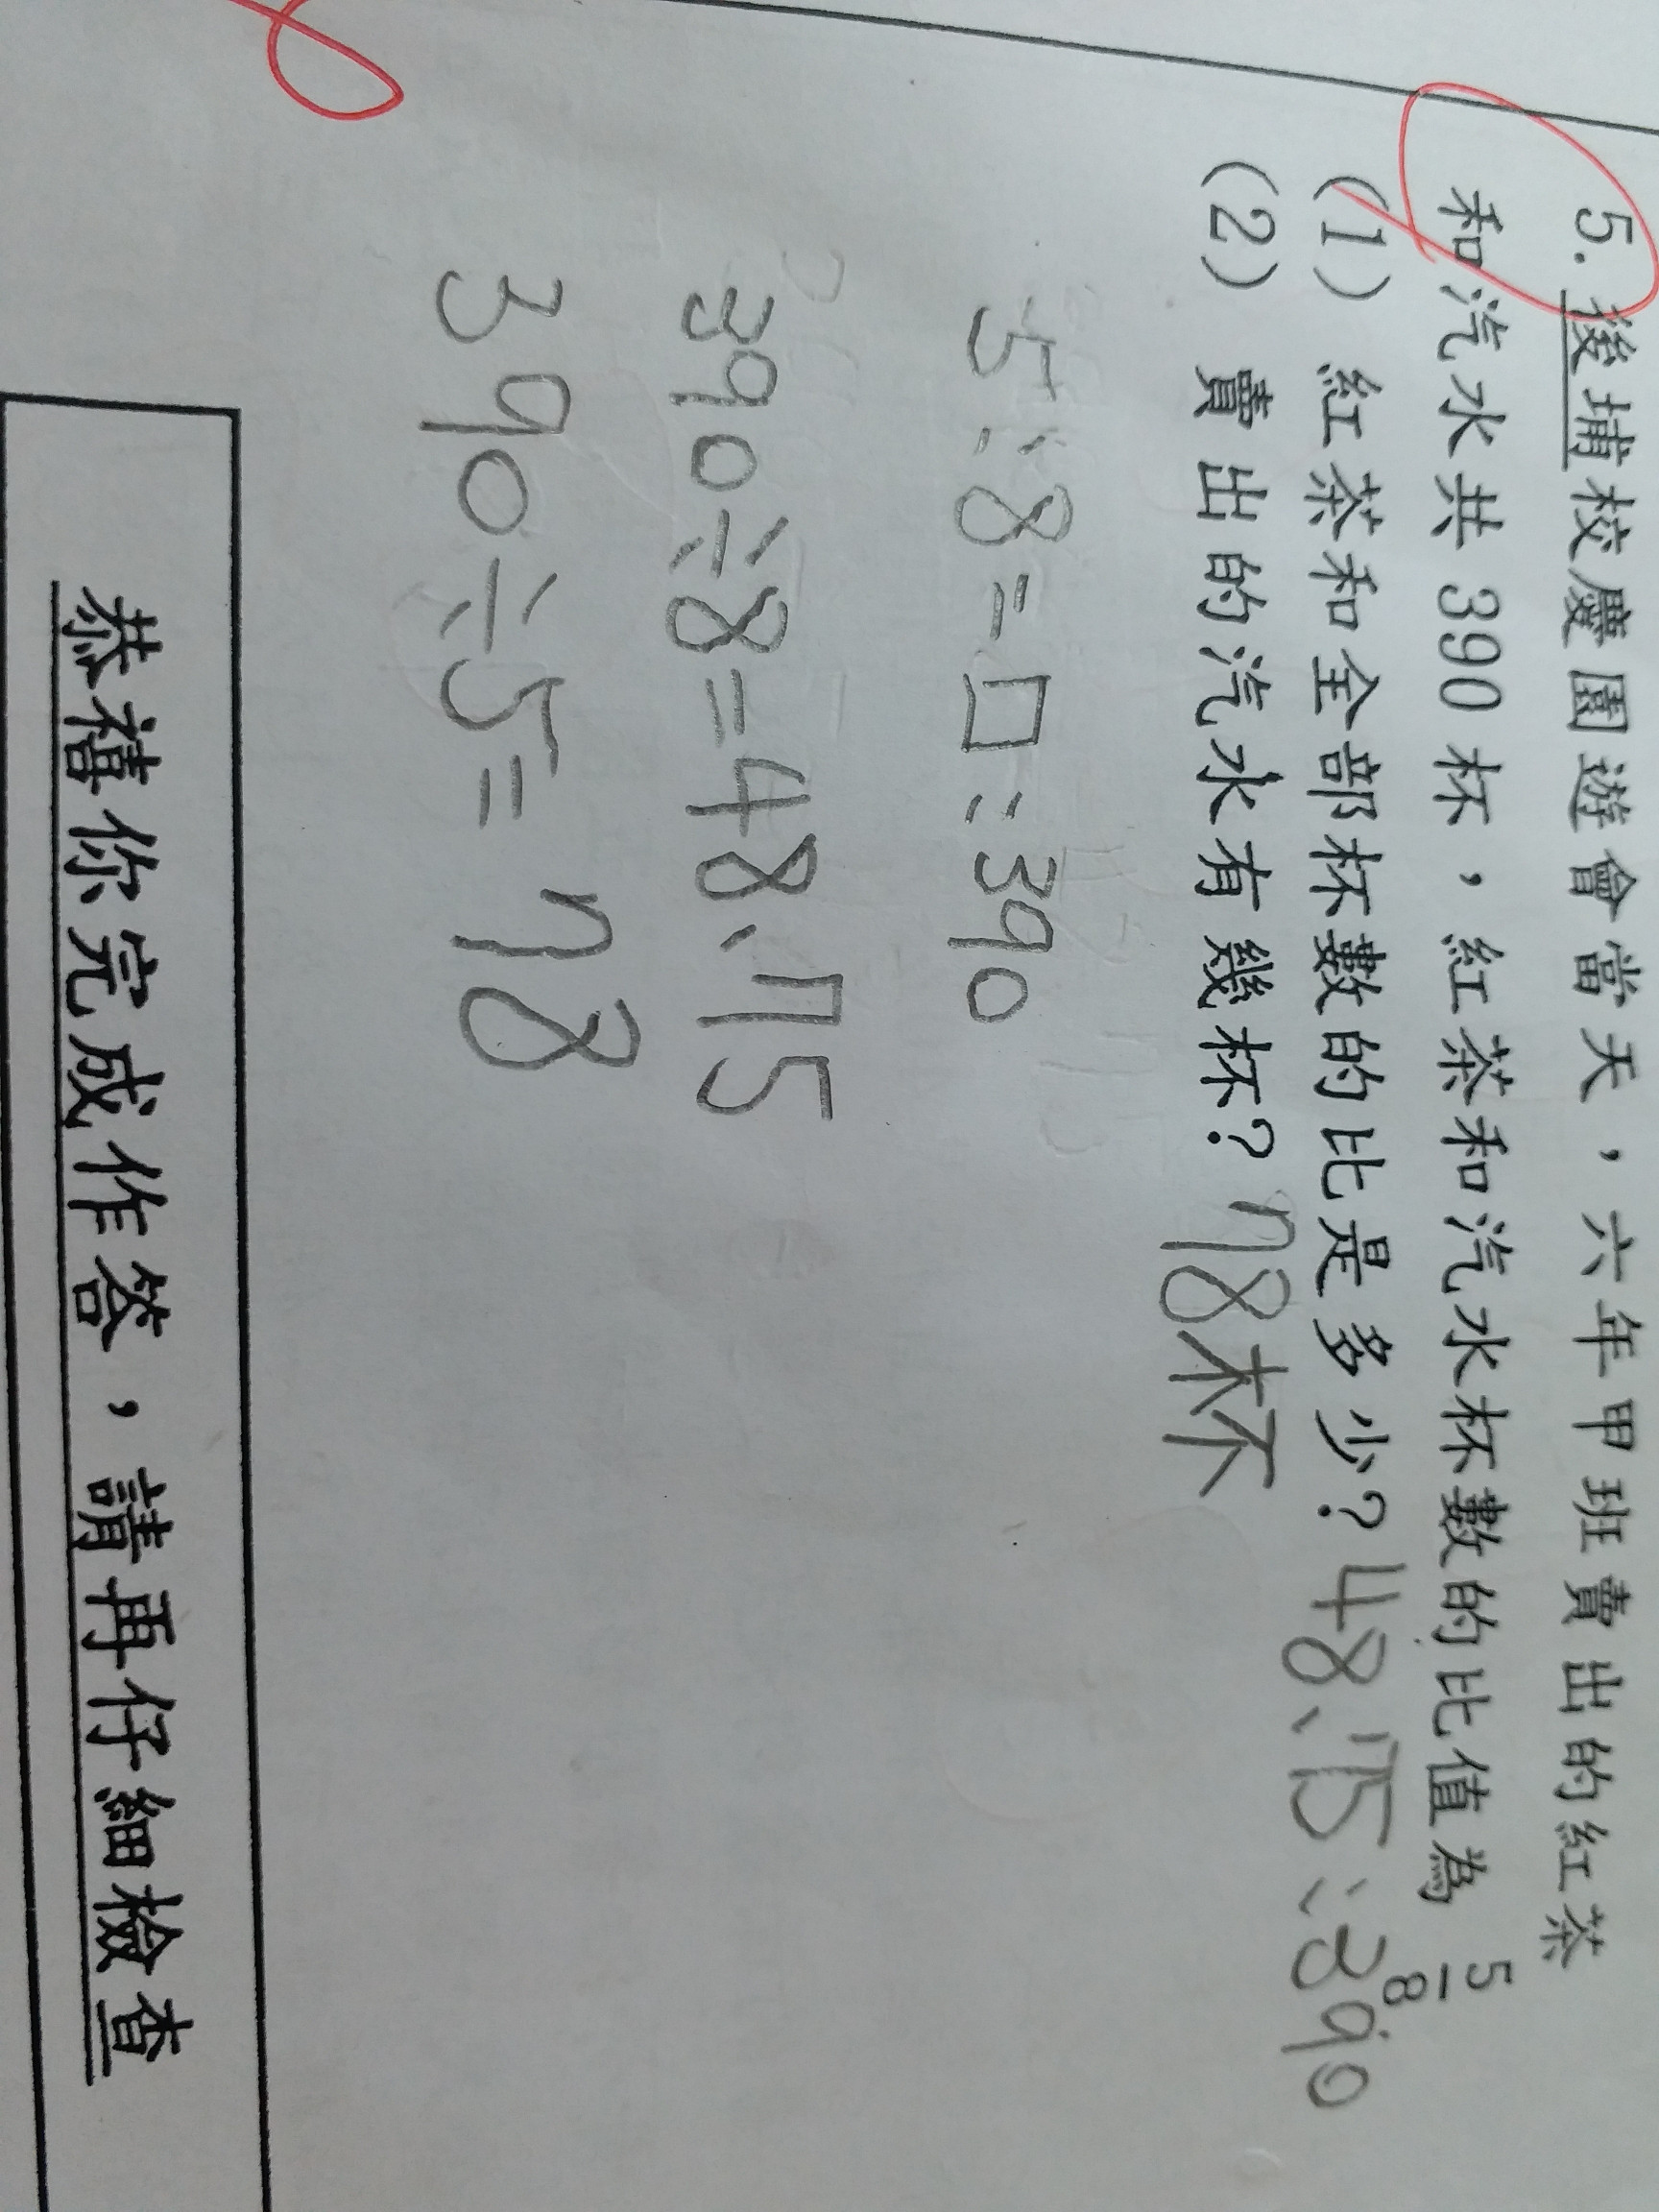 5. 後埔校慶園遊會當天，六年甲班賣出的紅茶
和汽水共 390 杯，紅茶和汽水杯數的比值為 5/8
(1) 紅茶和全部杯數的比是多少？48.75:390
(2) 賣出的汽水有幾杯？78杯
5:8=□:390
390÷8=48.75
390÷5=78
恭禧你完成作答，請再仔細檢查